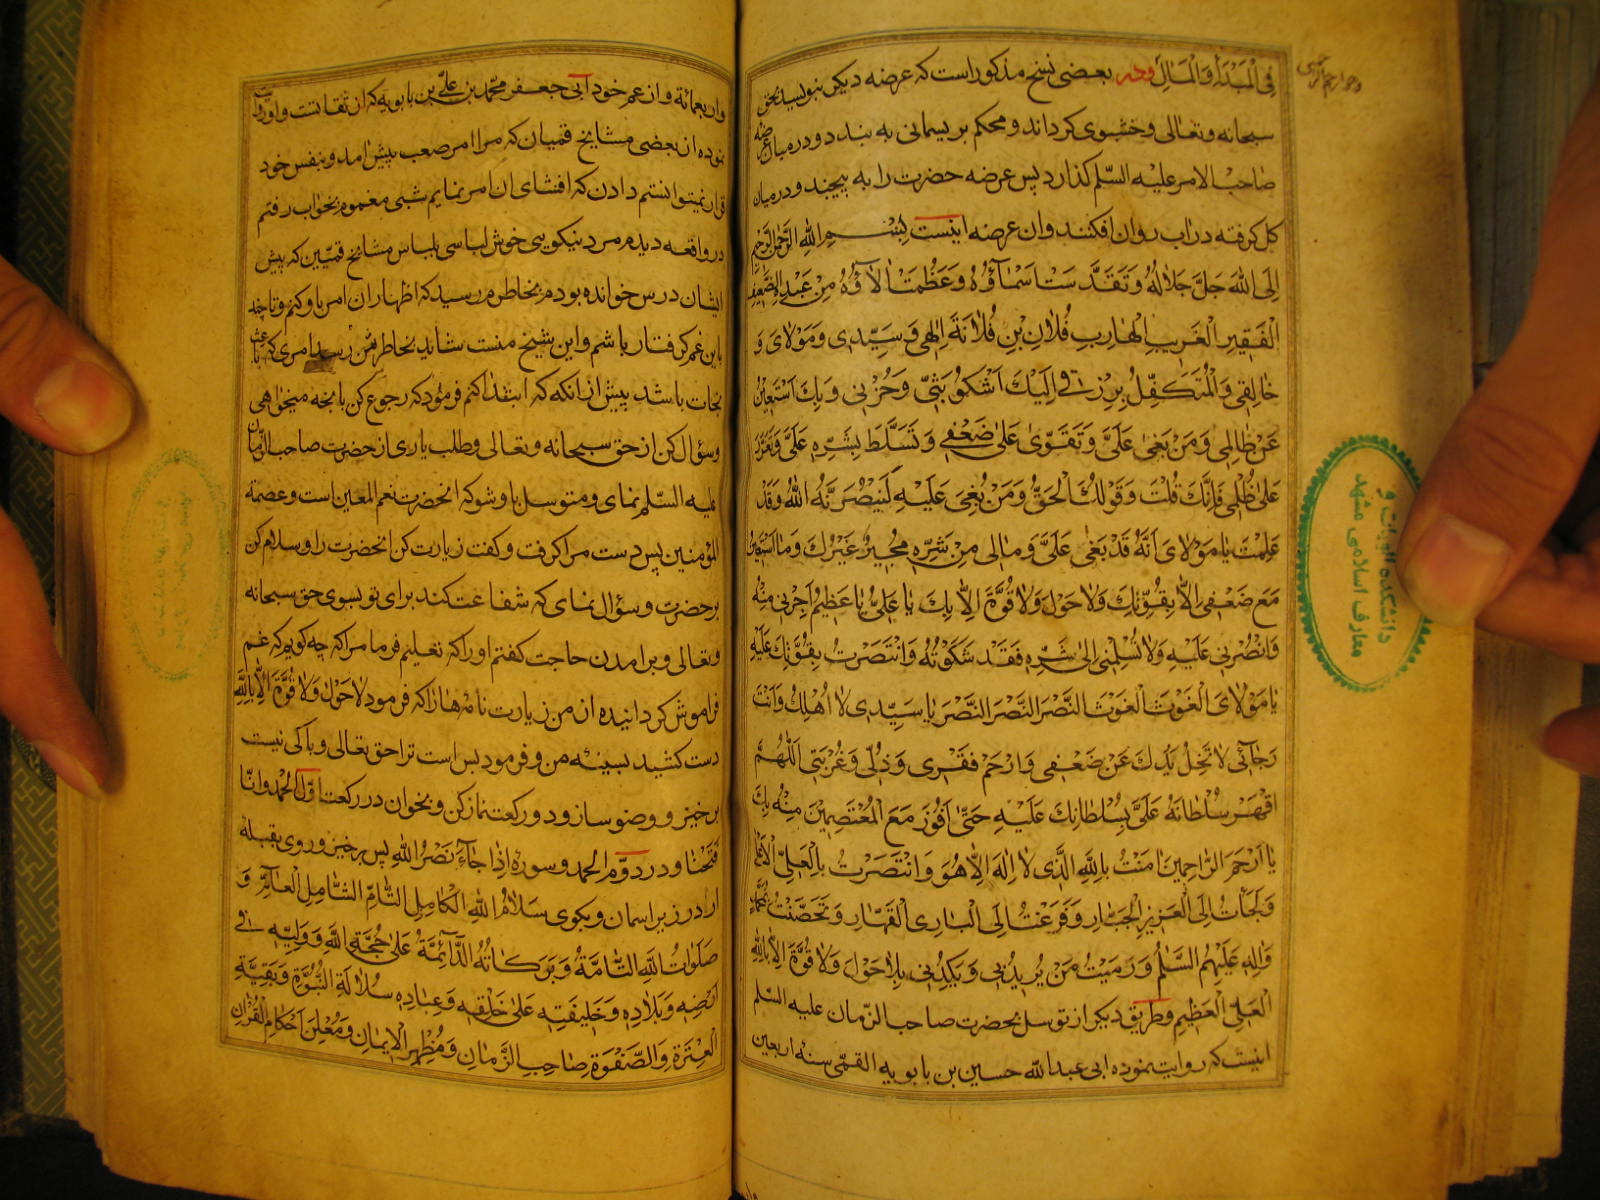 فِي الْمَبْدَأِ وَالْمَالِ ودر بعضی نسخ مذکور است که عرضه دیکر بنویسد بحق
سبحانه وتعالی وخشبوی کرداند و محکم بر یسمانی به بندد و در میان عرضه
صاحب الامر علیه السّلم کذارد پس عرضه حضرت را به پیچند و در میان
کل کرفته در آب روان افکنند و ان عرضه اینست بِسْمِ اللهِ الرَّحْمٰنِ الرَّحِیْمِ
اِلَى اللهِ جَلَّ جَلَالُهُ وَتَقَدَّسَتْ اَسْمَآؤُهُ وَعَظُمَتْ الآؤُهُ مِنْ عَبْدِهِ الضَّعِيفِ
الْفَقِيرِ الْغَرِيبِ الْهَارِبِ فُلَانِ بْنِ فُلَانَةَ اِلٰهِى وَ سَيِّدِى وَمَوْلَاىَ وَ
خَالِقِى وَالْمُتَكَفِّلُ بِرِزْقِى اِلَيْكَ اَشْكُو بَثِّى وَحُزْنِى وَبِكَ اَسْتَعِينُ
عَنْ ظَالِمِى وَمَنْ بَغَى عَلَىَّ وَتَقَوّٰى عَلَى ضَعْفِى وَتَسَلَّطَ بِشَرِّهِ عَلَىَّ وَتَعَزَّزَ
عَلَى ظُلْمِى فَاِنَّكَ قُلْتَ وَقَوْلُكَ الْحَقُّ وَمَنْ بُغِىَ عَلَيْهِ لَيَنْصُرَنَّهُ اللهُ وَقَدْ
عَلِمْتَ يَا مَوْلَاىَ اَنَّهُ قَدْ بَغٰى عَلَىَّ وَمَا لِى مِنْ شَرِّهِ مُجِيرٌ غَيْرُكَ وَمَا
مَعَ ضَعْفِى اِلَّا بِقُوَّتِكَ وَلَا حَوْلَ وَلَا قُوَّةَ اِلَّا بِكَ يَا عَلِىُّ يَا عَظِيمُ اَجِرْنِى مِنْهُ
وَانْصُرْنِى عَلَيْهِ وَلَا تُسْلِمْنِى اِلَى شَرِّهِ فَقَدْ شَكَوْتُهُ وَانْتَصَرْتُ بِقُوَّتِكَ عَلَيْهِ
يَا مَوْلَاىَ الْغَوْثَ الْغَوْثَ النَّصْرَ النَّصْرَ النَّصْرَ يَا سَيِّدِى لَا اُهْلِكُ وَاَنْتَ
رَجَائِى لَا تَخِلُّ يَدُكَ عَنْ ضَعْفِى وَارْحَمْ فَقْرِى وَذُلِّى وَغُرْبَتِى اَللّٰهُمَّ
اقْهَرْ سُلْطَانَهُ عَلَىَّ بِسُلْطَانِكَ عَلَيْهِ حَتّٰى اَفُوزَ مَعَ الْمُعْتَصِمِينَ مِنْهُ بِكَ
يَا اَرْحَمَ الرَّاحِمِينَ اٰمَنْتُ بِاللهِ الَّذِى لَا اِلٰهَ اِلَّا هُوَ وَانْتَصَرْتُ بِالْعَلِىِّ الْاَعْلٰى
وَلَجَأْتُ اِلَى الْعَزِيزِ الْجَبَّارِ وَفَزِعْتُ اِلَى الْبَارِى الْقَهَّارِ وَتَحَصَّنْتُ بِمُحَمَّدٍ
وَاٰلِهِ عَلَيْهِمُ السَّلٰمُ وَرَمَيْتُ مَنْ يُرِيدُنِى وَيَكِيدُنِى بِلَا حَوْلَ وَلَا قُوَّةَ اِلَّا بِاللهِ
الْعَلِىِّ الْعَظِيمِ وطریق دیکر از توسل بحضرت صاحب الزّمان علیه السّلم
اینست که روایت نموده ابی عبدالله حسین بن بابویه القمّی سنه اربعین
دانشکده الهیات و
معارف اسلامی مشهد
واربعمائة و از عم خود ابی جعفر محمّد بن علیّ بن بابویه که از ثقاتست و او روایت
نموده از بعضی مشایخ قمیان که مرا امر صعب پیش امد و بنفس خود
قرار نمیتوانستم دادن که افشای ان امر نمایم شبی مغموم بخواب رفتم
در واقعه دیدم مرد نیکویی خوش لباسی بلباس مشایخ قمیّین که پیش
ایشان درس خوانده بودم بخاطرم رسید که اظهار ان امر باو کنم و تا چند
باین غم کرفتار باشم و این شیخ منست شاید بخاطرش رسد امری که باعث
نجات باشد پیش از انکه ابتدا کنم فرمود که رجوع کن بانچه میخواهی
وسؤال کن از حق سبحانه و تعالی وطلب یاری از حضرت صاحب الزّمان
علیه السّلم نمای و متوسل باو شو که انحضرت نعم المعین است و عصمة
المؤمنین پس دست مرا کرفت و کفت زیارت کن انحضرت را و سلام کن
بر حضرت و سؤال نمای که شفاعت کند برای تو بسوی حق سبحانه
وتعالی و برامدن حاجت کفتم او را که تعلیم فرما مرا که چه کویم که غم
فراموش کردانیده از من زیارت نامه‌ها را که فرمود لَاحَوْلَ وَلَا قُوَّةَ اِلَّا بِاللهِ
دست کشید بسینه من و فرمود بس است ترا حق تعالی و باکی نیست
برخیز و وضو ساز و دو رکعت نماز کن و بخوان در رکعت اوّل الحمد وانّا
فَتَحْنَا و در دوّم الحمد و سوره اِذَا جَاءَ نَصْرُ اللهِ پس برخیز و روی بقبله
ار در زیر اسمان و بکوی سَلَامُ اللهِ الْكَامِلِ التَّامِّ الشَّامِلِ الْعَآمِّ وَ
صَلَوَاتُ اللهِ التَّامَّةُ وَبَرَكَاتُهُ الدَّآئِمَةُ عَلٰى حُجَّةِ اللهِ وَوَلِيِّهِ فِى
اَرْضِهِ وَبِلَادِهِ وَخَلِيفَتِهِ عَلٰى خَلْقِهِ وَعِبَادِهِ سُلَالَةِ النُّبُوَّةِ وَبَقِيَّةِ
الْعِتْرَةِ وَالصَّفْوَةِ صَاحِبِ الزَّمَانِ وَمُظْهِرِ الْاِيمَانِ وَمُعْلِنِ اَحْكَامِ الْقُرْاٰنِ